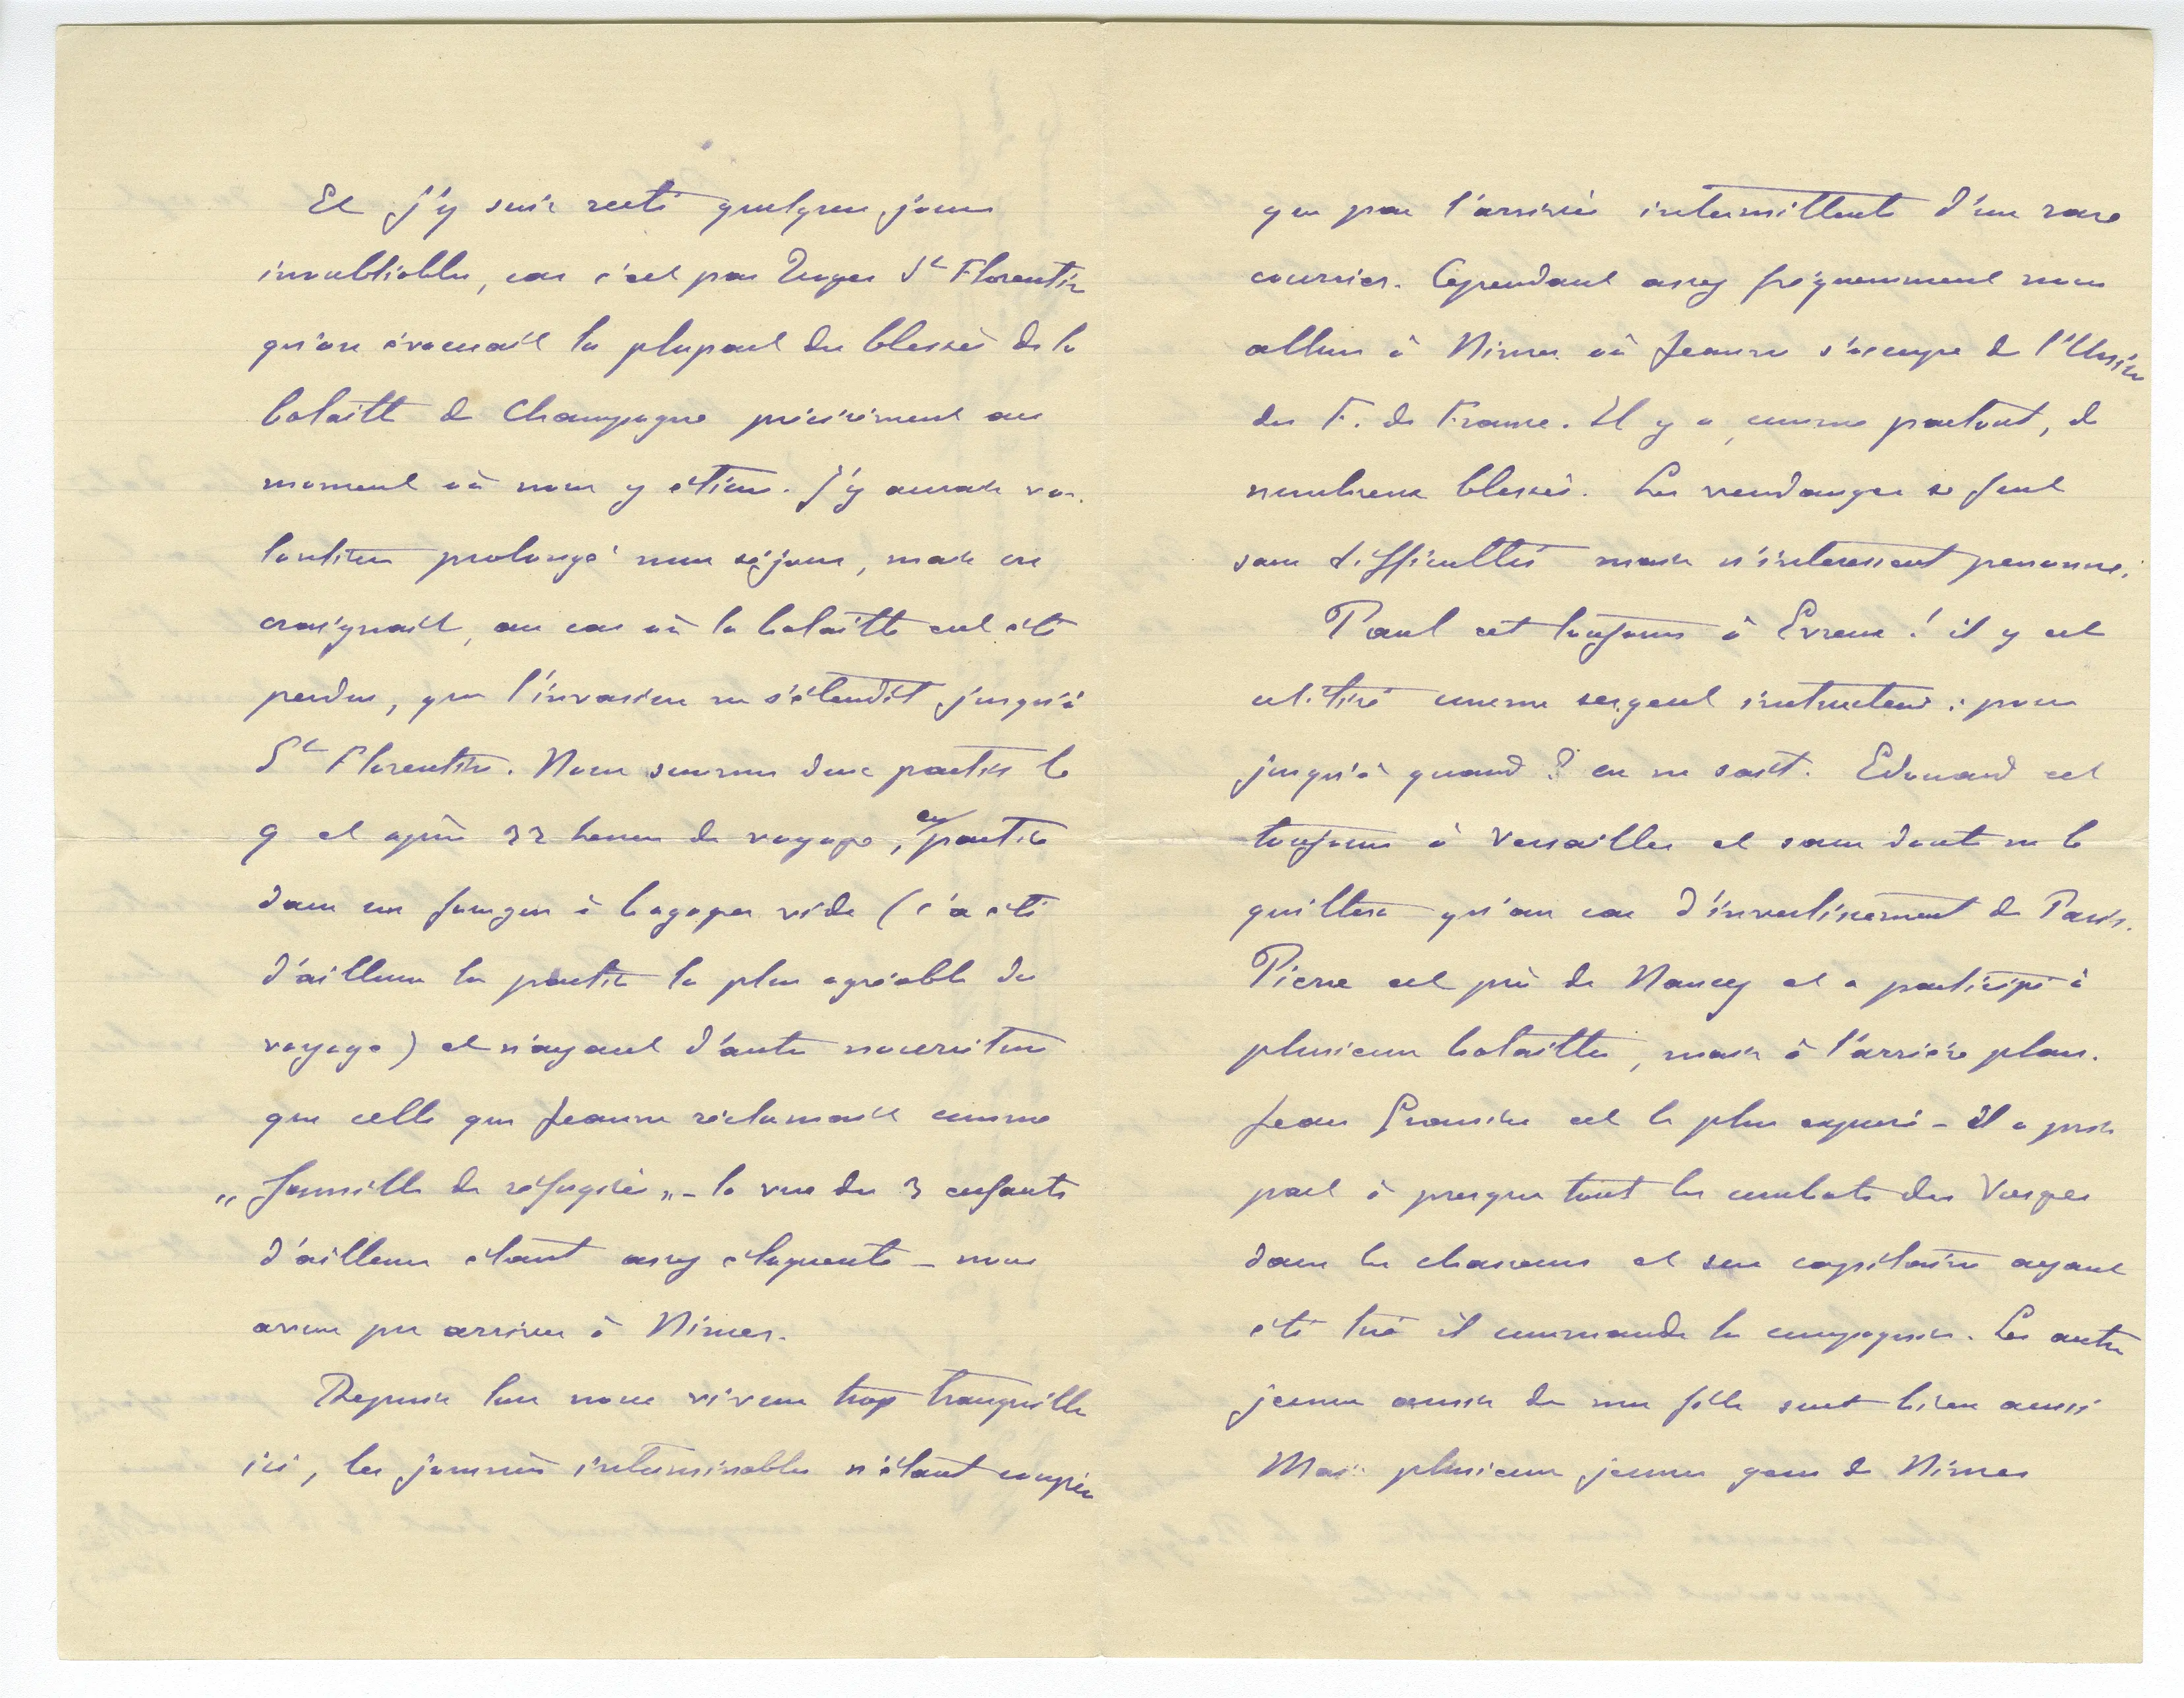 Et j'y suis resté quelques jours
inoubliables, car c'est par St Florentin
qu'on évacuait la plupart des blessés de la
bataille de Champagne précisément au
moment où nous y étions. J'y aurais vo-
lontiers prolongé mon séjour, mais on
craignait, au cas où la bataille eut été
perdue, que l'invasion ne s'étendît jusqu'à
St Florentin. Nous sommes donc partis le
9 et après 32 heures de voyage, en partie
dans un fourgon à bagages vide (ç'a été
d'ailleurs la partie la plus agréable du
voyage) et n'ayant d'autre nourriture
que celle que Jeanne réclamait comme
"famille de réfugiés" - la vue des 3 enfants
d'ailleurs étant assez éloquente - nous
avons pu arriver à Nimes.
Depuis lors nous vivons trop tranquilles
ici, les journées interminables n'étant coupées
que par l'arrivée intermittente d'un rare
courrier. Cependant assez fréquemment nous
allons à Nimes où Jeanne s'occupe de l'Union
des F. de France. Il y a, comme partout, de
nombreux blessés. Les vendanges se font
sans difficultés mais n'intéressent personne.
Paul est toujours à Evreux ! il y est
utilisé comme sergent instructeur : pour
jusqu'à quand ? on ne sait. Edouard est
toujours à Versailles et sans doute ne le
quittera qu'au cas d'investissement de Paris.
Pierre est près de Nancy et a participé à
plusieurs batailles, mais à l'arrière plan.
Jean est le plus exposé - il a pris
part à presque tout les combats des Vosges
dans les chasseurs et son capitaine ayant
été tué il commande la compagnie. Les autres
jeunes amis de ma fille sont bien aussi
Mais plusieurs jeunes gens de Nimes